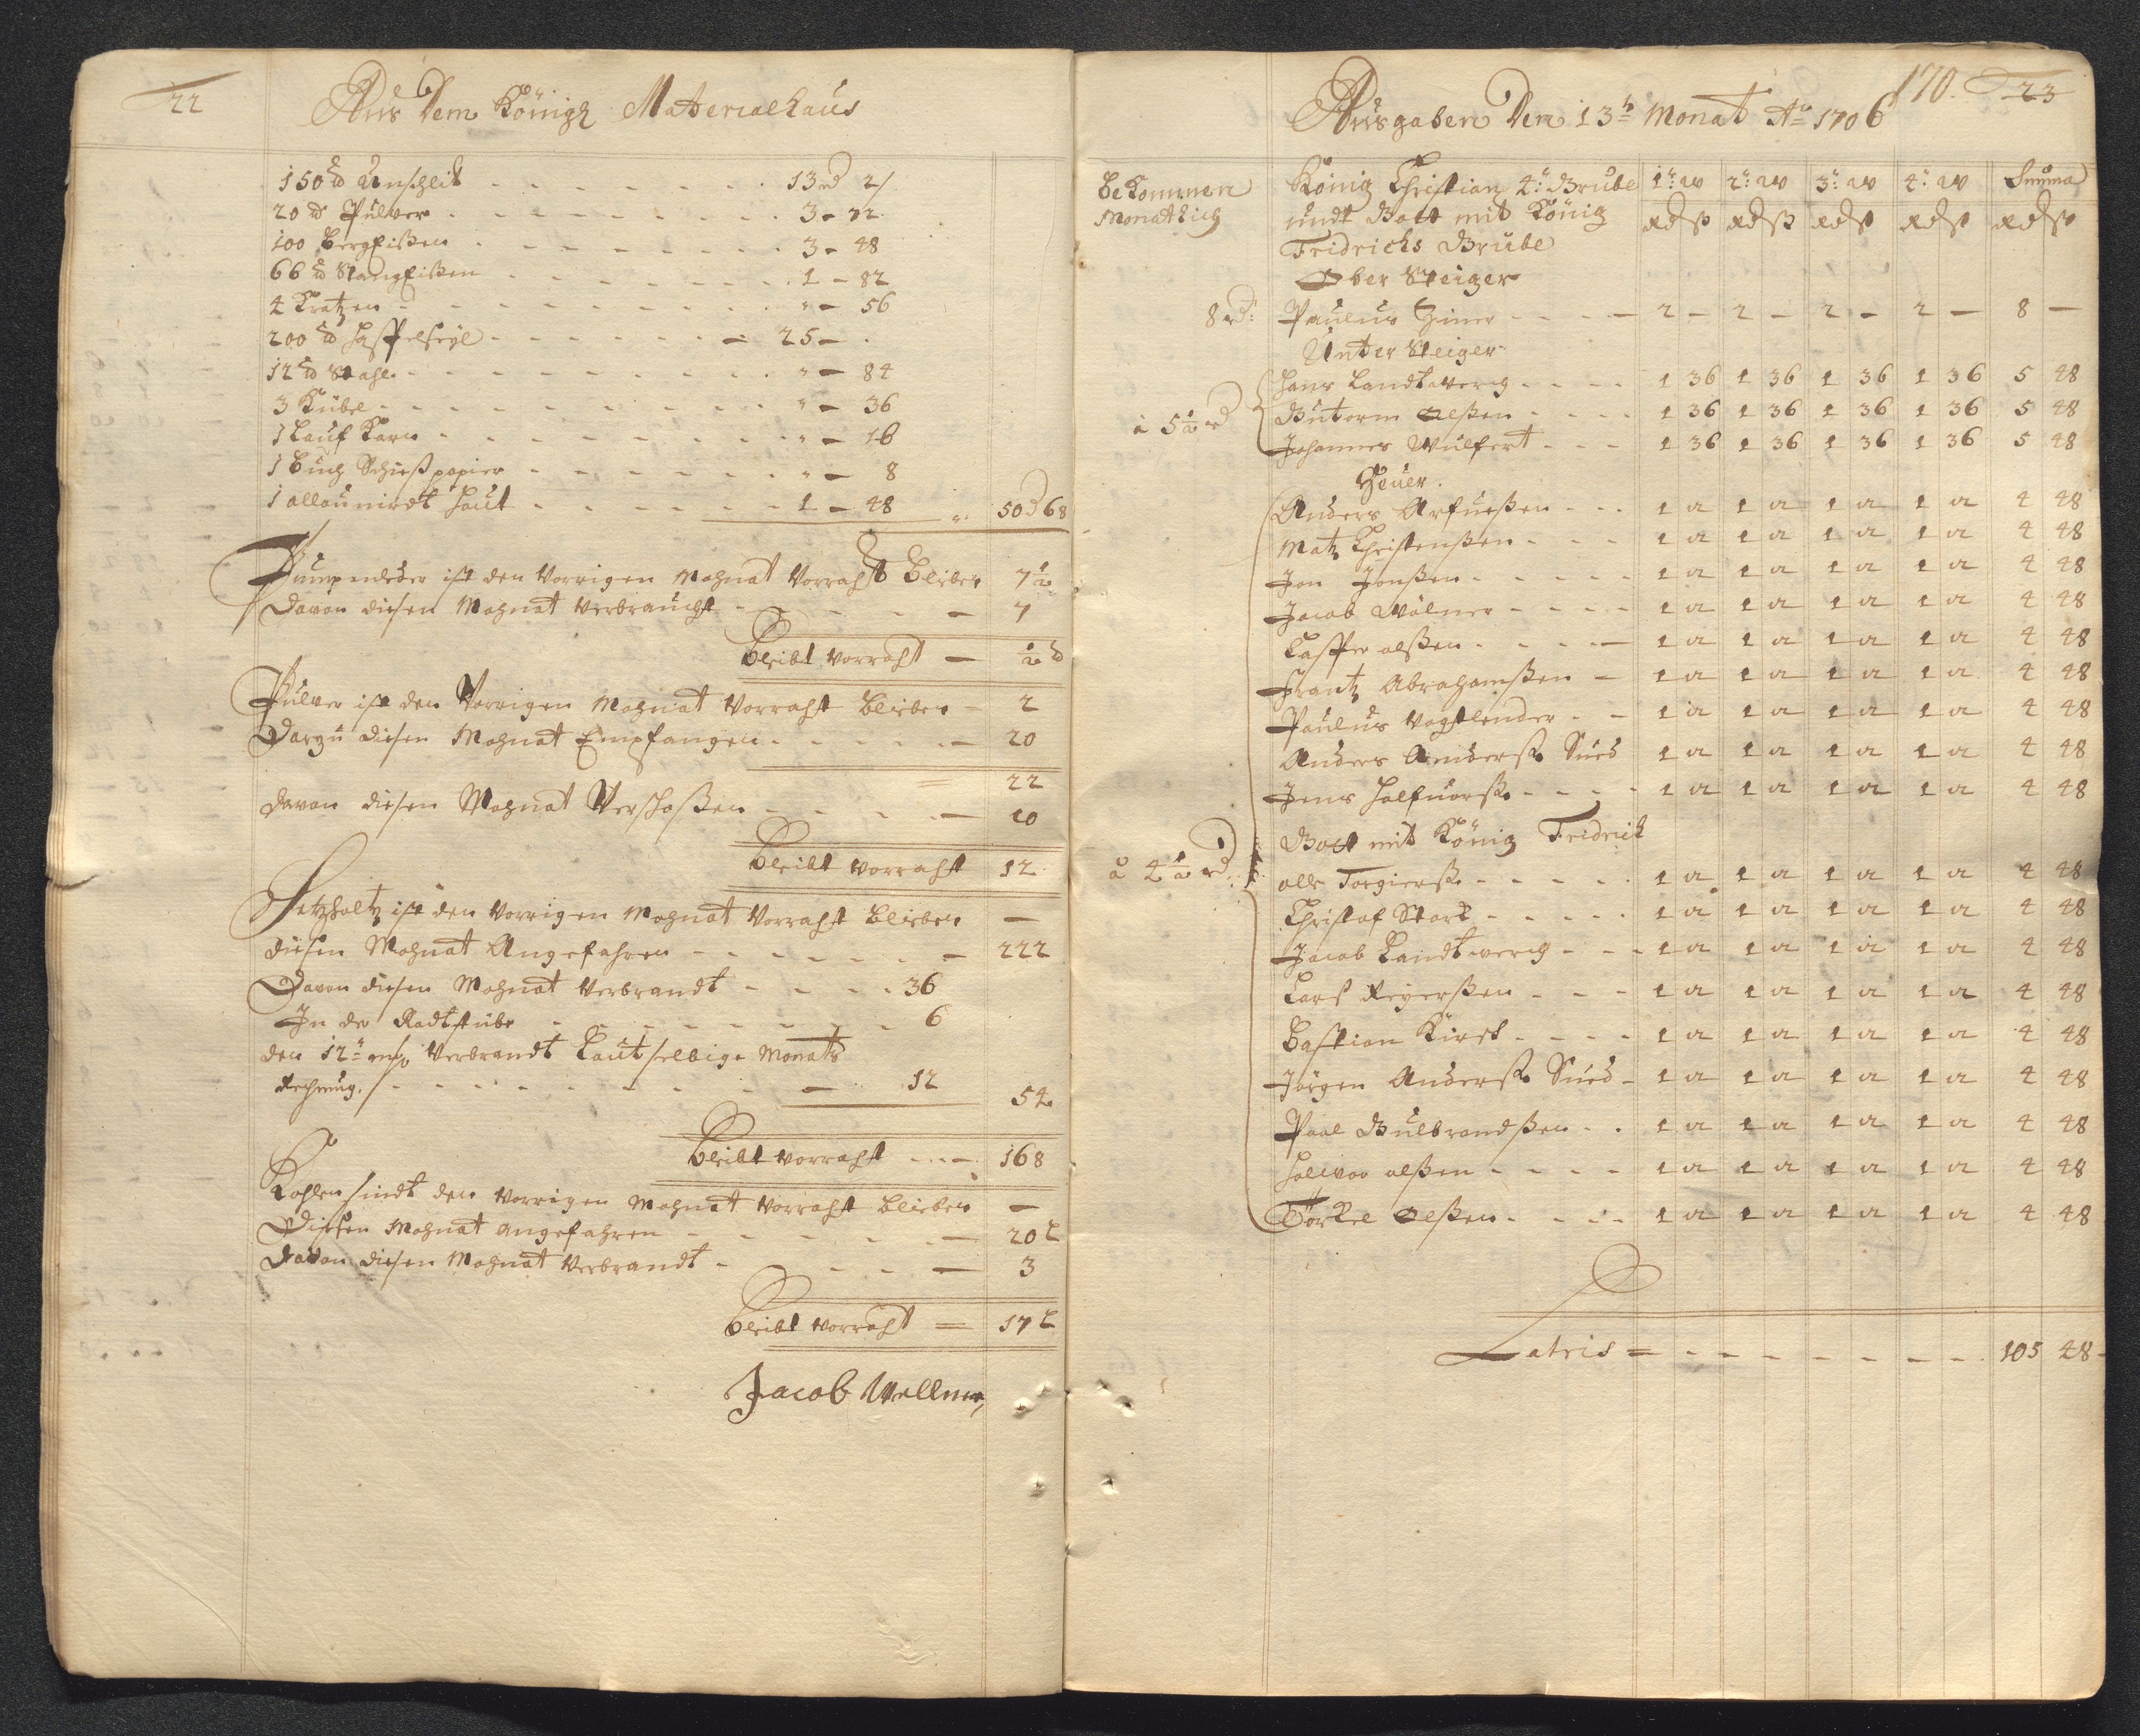 22
Aus Dem Königl Materialhaus
150 ℔ Unschlit - - - - - - - 13 rd 21
20 ℔ Pulver - - - - - - - 3 - 72
100 Bergeißen - - - - - - - 3 - 48
66 ℔ Stangeißen - - - - - - 1 - 82
4 Kratzen - - - - - - - " - 56
200 ℔ Haspelseyl - - - - - - 25 - .
12 ℔ Stahl - - - - - - - " - 84
3 Kübel - - - - - - - " - 36
1 Lauf Karn - - - - - - - " - 16
1 Buch Schießpapier - - - - - - " - 8
1 allaunirdt Haut - - - - - - 1 - 48 50 d 68
Pumpenleder ist den Vorrigen Mohnat Vorraht blieben 7 1/2
Davon diesen Mohnat Verbraucht - - - 7
Bleibt Vorraht - 1/2 ℔
Pulver ist den Vorrigen Mohnat Vorraht blieben - 2
Darzu diesen Mohnat Empfangen - - - - 20
22
Davon diesen Mohnat Verschoßen - - - - 10
Bleibt Vorraht 12
Setzholtz ist den Vorrigen Mohnat Vorraht blieben -
diesen Mohnat Angefahren - - - - - - 222
Davon diesen Mohnat Verbrandt - - - - 36
In der Radtstube - - - - - - - 6
den 12ten Verbrandt Laut selbige Monats
Rechnung - - - - - - - 12
54
Bleibt Vorraht - - - 168
Kohlen sindt den Vorrigen Mohnat Vorraht blieben -
Diesen Mohnat angefahren - - - - - - 20 L
Davon diesen Mohnat Verbrandt - - - - 3
Bleibt Vorraht = 17 L
Jacob Wellner
170. 23
Ausgaben Dem 13tn Monat Ao 1706
Bekommen Monathlich
König Christian 4: Grube 1: W 2: W 3: W 4: W Summa
undt Gott mit König Rdß Rdß Rdß Rdß Rdß
Fridrichs Grube
Ober Steiger
8 rd: Paulus Ziner - - - - 2 - 2 - 2 - 2 - 8 -
Unter Steiger
Hans Landtwerg - - - - 1 36 1 36 1 36 1 36 5 48
à 5 1/2 rd Gutorm Olßen - - - - 1 36 1 36 1 36 1 36 5 48
Johannes Wulfert - - - 1 36 1 36 1 36 1 36 5 48
Heuer.
Anders Arfueßen - - - 1 12 1 12 1 12 1 12 4 48
Matz Christenßen - - - 1 12 1 12 1 12 1 12 4 48
Jon Jonßen - - - - - 1 12 1 12 1 12 1 12 4 48
Jacob Wölner - - - - 1 12 1 12 1 12 1 12 4 48
Casper olßen - - - - 1 12 1 12 1 12 1 12 4 48
Frantz Abrahamßen - 1 12 1 12 1 12 1 12 4 48
Paulus Vogtlender - - 1 12 1 12 1 12 1 12 4 48
Anders Anderß. Sued 1 12 1 12 1 12 1 12 4 48
Jens Halfuorß. - - - - 1 12 1 12 1 12 1 12 4 48
Gott mit König Fridrick
à 4 1/2 rd: olle Torgierß. - - - - - 1 12 1 12 1 12 1 12 4 48
Christof Stark - - - - - 1 12 1 12 1 12 1 12 4 48
Jacob Landtwerg - - - 1 12 1 12 1 12 1 12 4 48
Lars Reyerßen - - - 1 12 1 12 1 12 1 12 4 48
Bastian Kirst - - - - 1 12 1 12 1 12 1 12 4 48
Jörgen Anderß. Sued - 1 12 1 12 1 12 1 12 4 48
Paal Gulbrandßen - - 1 12 1 12 1 12 1 12 4 48
Halvor olßen - - - - 1 12 1 12 1 12 1 12 4 48
Törkel Olßen - - - - 1 12 1 12 1 12 1 12 4 48
Latris = - - - - - - - - 105 48